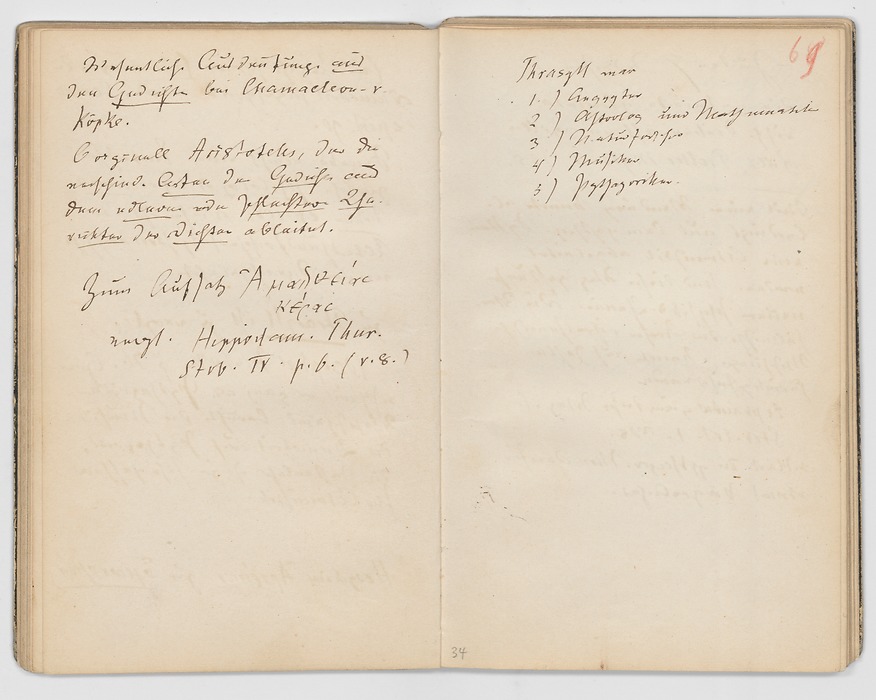 Wesentliche Ausbeutung aus
den Gedichten bei Chamaeleon v.
Köpke.
Aristoteles, der die
verschied. Arten der Gedichte aus
dem edleren oder schlechteren Cha-
rakter der Dichter ableitet.
Zum Aufsatz Ἀμαλθείας
κέρας
vergl. Hippodam. Thur.
Stob. IV. p. 6. (v. 8.)
69
Thrasyll war
1.) Aegypter
2) Astrolog und Mathematiker
3) Naturforscher
4) Musiker
5) Pythagoriker.
34